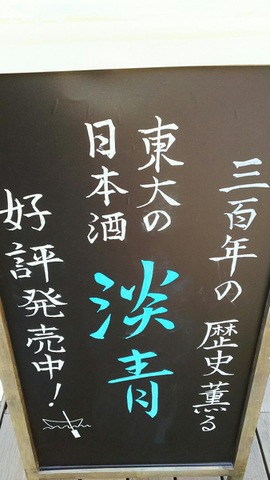 三百年の歴史薫る
東大の
日本酒
淡青
好評発売中!